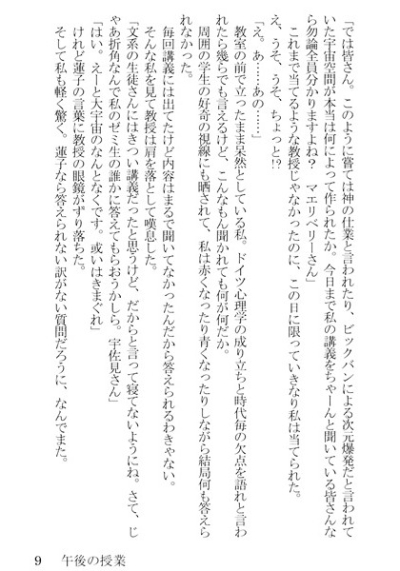 「では皆さん。このように嘗ては神の仕業と言われたり、ビックバンによる次元爆発だと言われて
いた宇宙空間が本当は何によって作られたか。今日まで私の講義をちゃーんと聞いている皆さんな
ら勿論全員分かりますよね？　マエリベリーさん」
これまで当てるような教授じゃなかったのに、この日に限っていきなり私は当てられた。
え、うそ、うそ、ちょっと!?
「え。あ……あの……」
教室の前で立ったまま呆然としている私。ドイツ心理学の成り立ちと時代毎の欠点を語れと言わ
れたら幾らでも言えるけど、こんなもん聞かれても何が何だか。
周囲の学生の好奇の視線にも晒されて、私は赤くなったり青くなったりしながら結局何も答えら
れなかった。
毎回講義には出てたけど内容はまるで聞いてなかったんだから答えられるわきゃない。
そんな私を見て教授は肩を落として嘆息した。
「文系の生徒さんにはきつい講義だったと思うけど、だからと言って寝てないようにね。さて、じ
ゃあ折角なんで私のゼミ生の誰かに答えてもらおうかしら。宇佐見さん」
「はい。えーと大宇宙のなんとなくです。或いはきまぐれ」
けれど蓮子の言葉に教授の眼鏡がずり落ちた。
そして私も軽く驚く。蓮子なら答えられない訳がない質問だろうに、なんでまた。
9　午後の授業